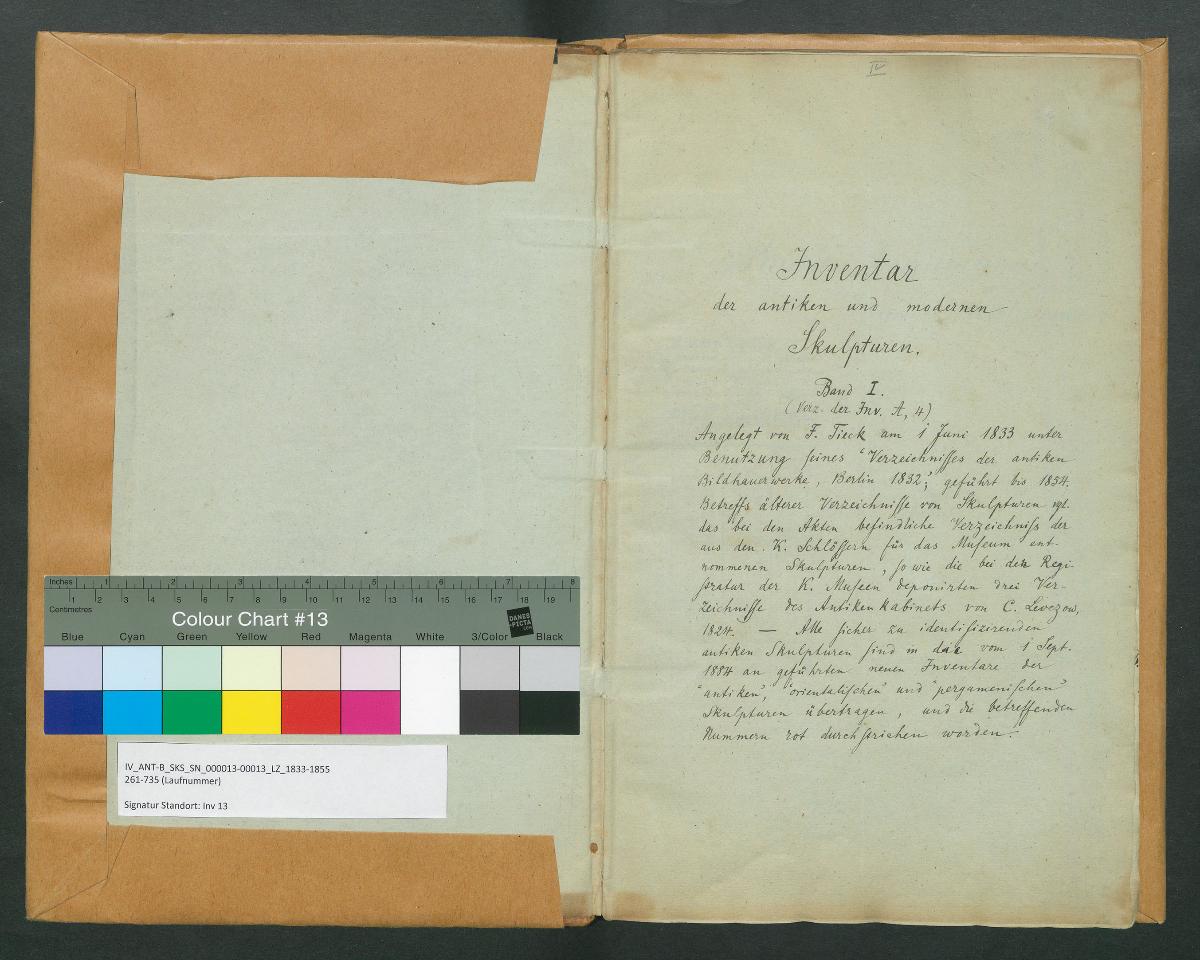 Inches 1 2 3 4 5 6 7 8
1 2 3 4 5 6 7 8 9 10 11 12 13 14 15 16 17 18 19
Centimetres
Colour Chart #13
DANES
-PICTA
.COM
Blue Cyan Green Yellow Red Magenta White 3/Color Black
IV_ANT-B_SKS_SN_000013-00013_LZ_1833-1855
261-735 (Laufnummer)
Signatur Standort: Inv 13
IV
Inventar
der antiken und modernen
Skulpturen.
Band I.
(Verz. der Inv. A, 4)
Angelegt von F. Tieck am 1 Juni 1833 unter
Benutzung seines "Verzeichnisses der antiken
Bildhauerwerke, Berlin 1832"; geführt bis 1834.
Betreffs älterer Verzeichnisse von Skulpturen vgl.
das bei den Akten befindliche Verzeichniss der
aus den K. Schlössern für das Museum ent-
nommenen Skulpturen, so wie die bei der Regi-
stratur der K. Museen deponirten drei Ver-
zeichnisse des Antikenkabinets von C. Levezow,
1824. — Alle sicher zu identifizirenden
antiken Skulpturen sind in die vom 1 Sept.
1884 an geführten neuen Inventare der
"antiken", "orientalischen" und "pergamenischen"
Skulpturen übertragen, und die betreffenden
Nummern rot durchstrichen worden.